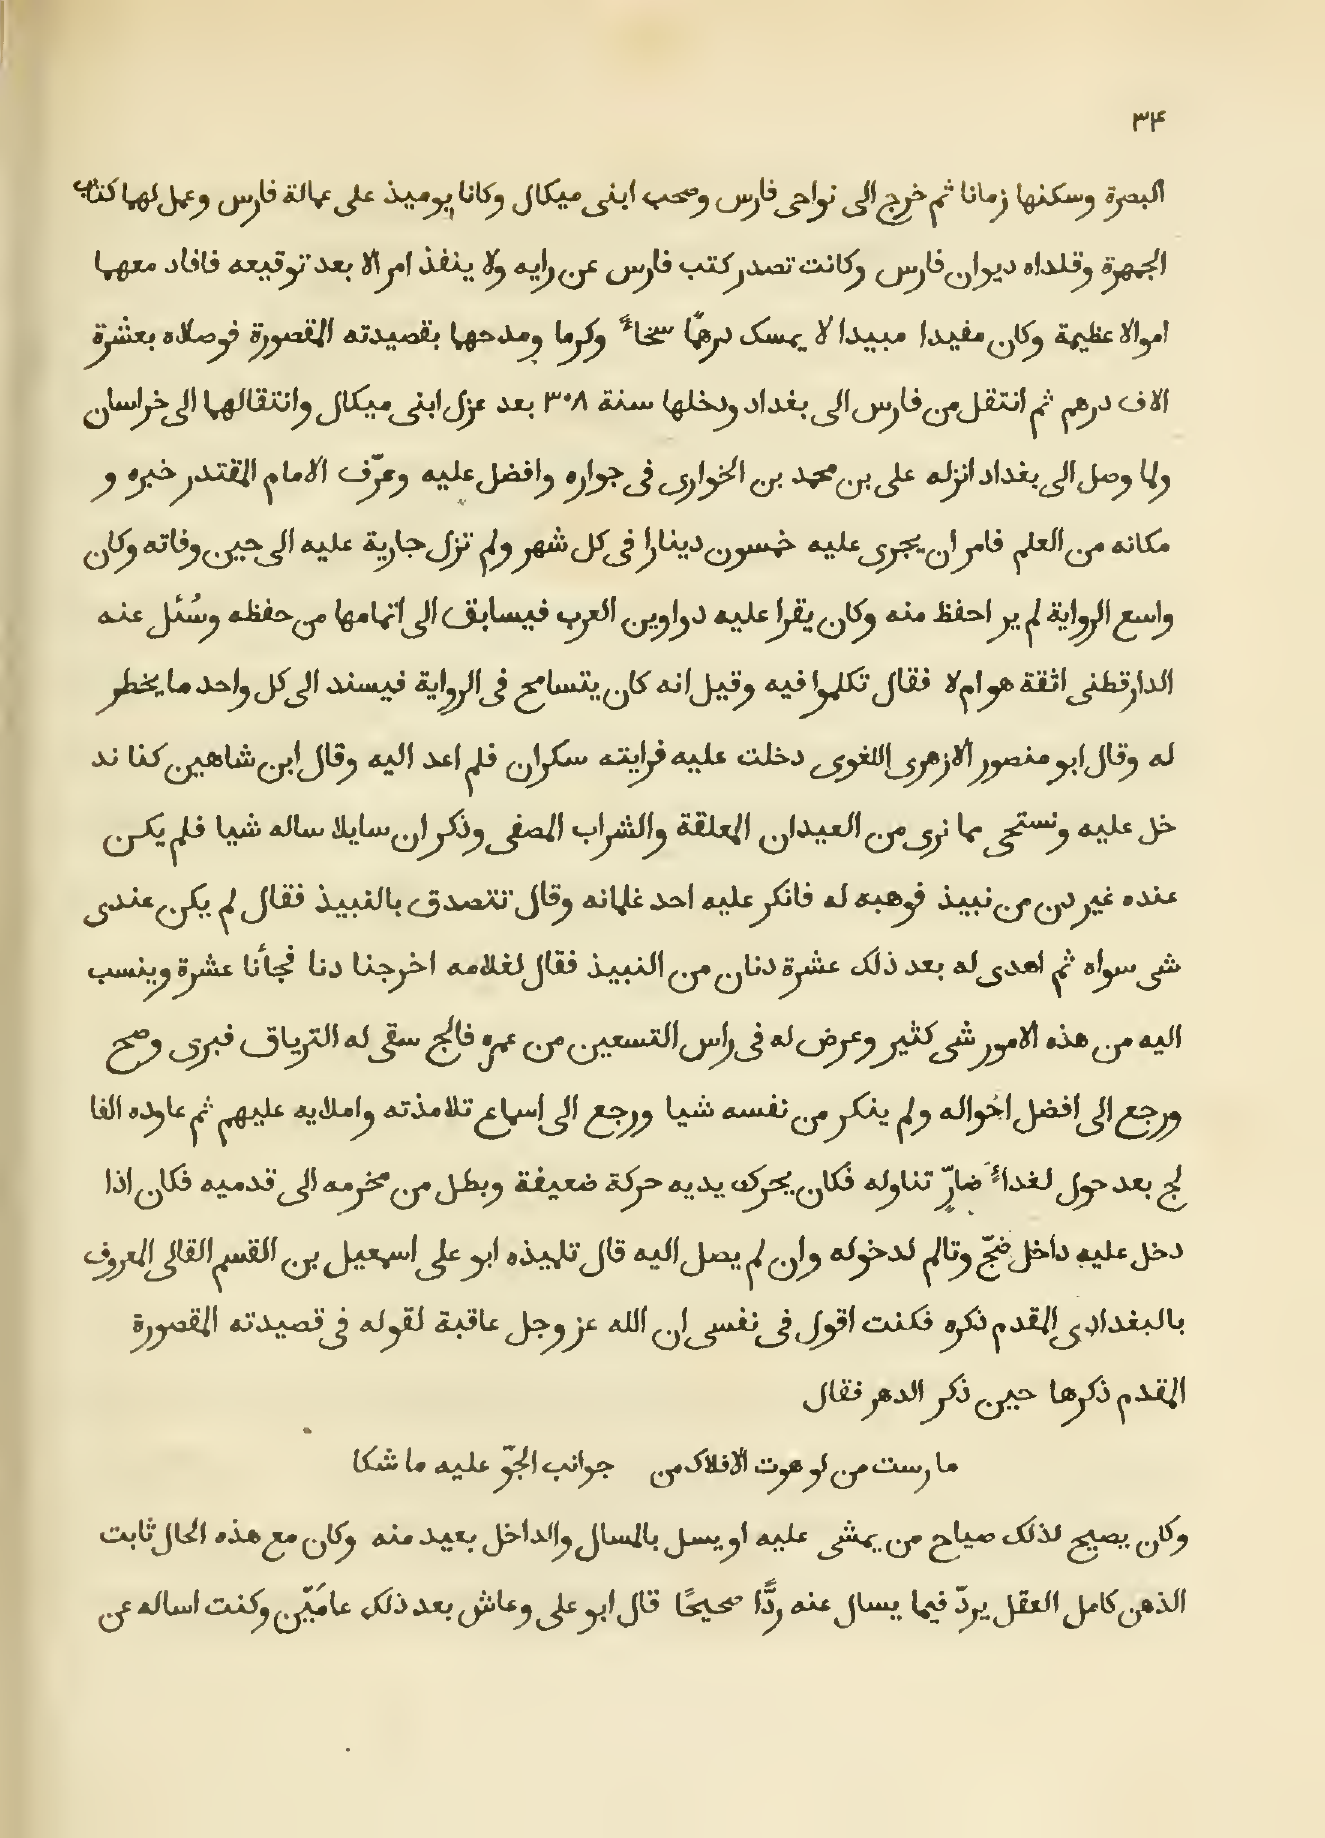 ٣۴
البصرة وسكنها زمانا ثم خرج الى نواحى فارس وصحب ابنى ميكال وكانا يوميذ على عمالة فارس وعمل لهما كتاب
الجمهرة وقلداه ديوان فارس وكانت تصدر كتب فارس عن رايه ولا ينفذ امر الا بعد توقيعه فافاد معهما
اموالا عظيمة وكان مفيدا مبيدا لا يمسك درهمًا سخاءً وكرما ومدحهما بقصيدته المقصورة فوصلاه بعشرة
الاف درهم ثم انتقل من فارس الى بغداد ودخلها سنة ٣٠٨ بعد عزل ابنى ميكال وانتقالهما الى خراسان
ولما وصل الى بغداد انزله على بن محمد بن الخوارى فى جواره وافضل عليه وعرّف الامام المقتدر خبره و
مكانه من العلم فامر ان يجرى عليه خمسون دينارا فى كل شهر ولم تزل جارية عليه الى حين وفاته وكان
واسع الرواية لم ير احفظ منه وكان يقرا عليه دواوين العرب فيسابق الى اتمامها من حفظه وسُئل عنه
الدارقطنى اثقة هو ام لا فقال تكلموا فيه وقيل انه كان يتسامح فى الرواية فيسند الى كل واحد ما يخطر
له وقال ابو منصور الازهرى اللغوى دخلت عليه فرايته سكران فلم اعد اليه وقال ابن شاهين كنا ند
خل عليه ونستحى مما نرى من العيدان المعلقة والشراب المصفى وذكر ان سايلا ساله شيا فلم يكن
عنده غير دن من نبيذ فوهبه له فانكر عليه احد غلمانه وقال تتصدق بالنبيذ فقال لم يكن عندى
شى سواه ثم اهدى له بعد ذلك عشرة دنان من النبيذ فقال لغلامه اخرجنا دنا فجأنا عشرة وينسب
اليه من هذه الامور شى كثير وعرض له فى راس التسعين من عمره فالج سقى له الترياق فبرى وصح
ورجع الى افضل احواله ولم ينكر من نفسه شيا ورجع الى إسماع تلامذته واملايه عليهم ثم عاوده الفا
لج بعد حول لغداءٍ ضارّ تناوله فكان يحرك يديه حركة ضعيفة وبطل من محزمه الى قدميه فكان اذا
دخل عليه داخل ضجّ وتالم لدخوله وان لم يصل اليه قال تلميذه ابو على اسمعيل بن القسم القالى المعروف
بالبغدادى المقدم ذكره فكنت اقول فى نفسى ان الله عز وجل عاقبة لقوله فى قصيدته المقصورة
المقدم ذكرها حين ذكر الدهر فقال
مارست من لو هوت الافلاك من جوانب الجوّ عليه ما شكا
وكان يصيح لذلك صياح من يمشى عليه او يسل بالمسال والداخل بعيد منه وكان مع هذه الحال ثابت
الذهن كامل العقل يردّ فيما يسال عنه ردًّا صحيحًا قال ابو على وعاش بعد ذلك عامَيّن وكنت اساله عن